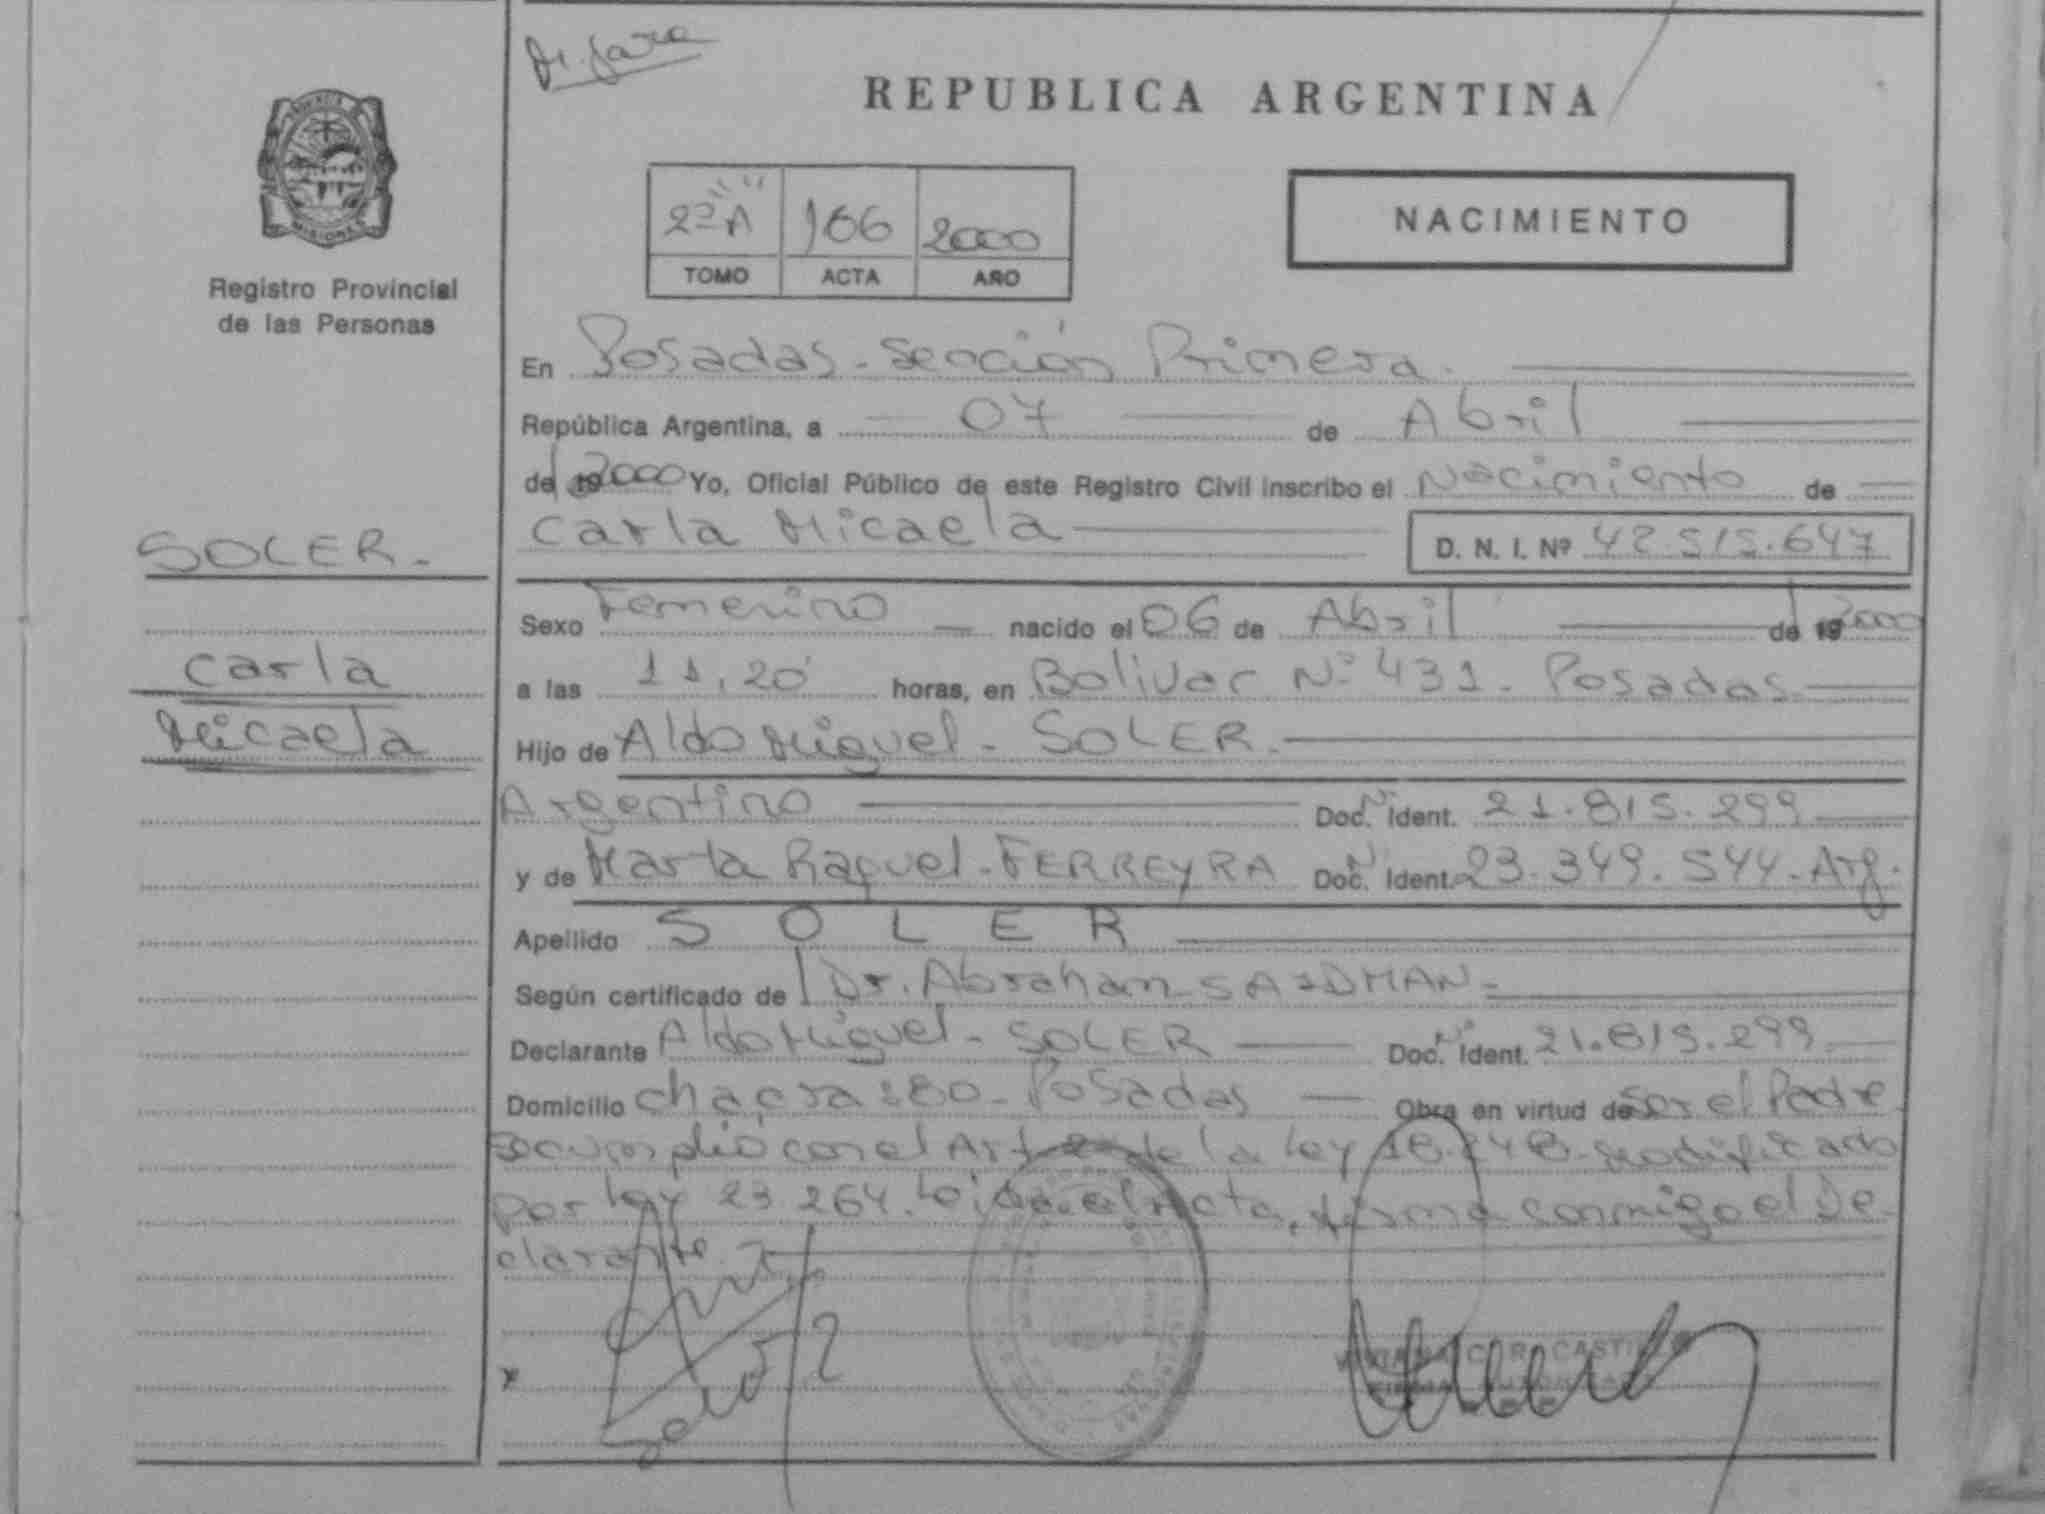 REPUBLICA ARGENTINA
MISIONES
Registro Provincial
de las Personas
2º "A" 166 2000
TOMO ACTA AÑO
NACIMIENTO
En Posadas - Sección Primera.
República Argentina, a 07 de Abril
del 19 2000 Yo, Oficial Público de este Registro Civil inscribo el Nacimiento de
Carla Micaela D. N. I. Nº 42.515.647
SOLER.-
Carla
Micaela
Sexo Femenino nacido el 06 de Abril del 19 2000
a las 11,20 horas, en Bolivar Nº 431 - Posadas
Hijo de Aldo Miguel - SOLER.
Argentino Doc. Nº Ident. 21.815.299
y de Marta Raquel - FERREYRA Doc. Nº Ident. 23.349.544 - Arg.
Apellido SOLER
Según certificado del Dr. Abraham SAIDMAN -
Declarante Aldo Miguel - SOLER Doc. Nº Ident. 21.815.299
Domicilio Chacra 180 - Posadas Obra en virtud de Ser el Padre
Se cumplió con el Art de la Ley 18.248 - modificado
por Ley 23.264. Leída el Acta, firma conmigo el De
clarante.
x